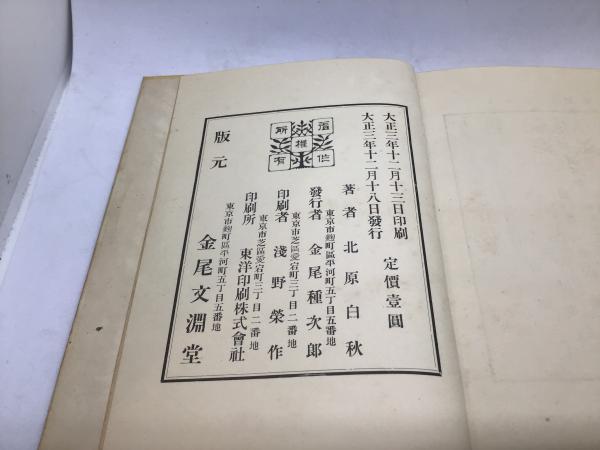 大正三年十二月十三日印刷
大正三年十二月十八日發行
定價壹圓
著者 北原白秋
東京市麹町區平河町五丁目五番地
發行者 金尾種次郎
東京市芝區愛宕町三丁目二番地
印刷者 淺野榮作
東京市芝區愛宕町三丁目二番地
印刷所 東洋印刷株式會社
著作權所有
版元
東京市麹町區平河町五丁目五番地
金尾文淵堂